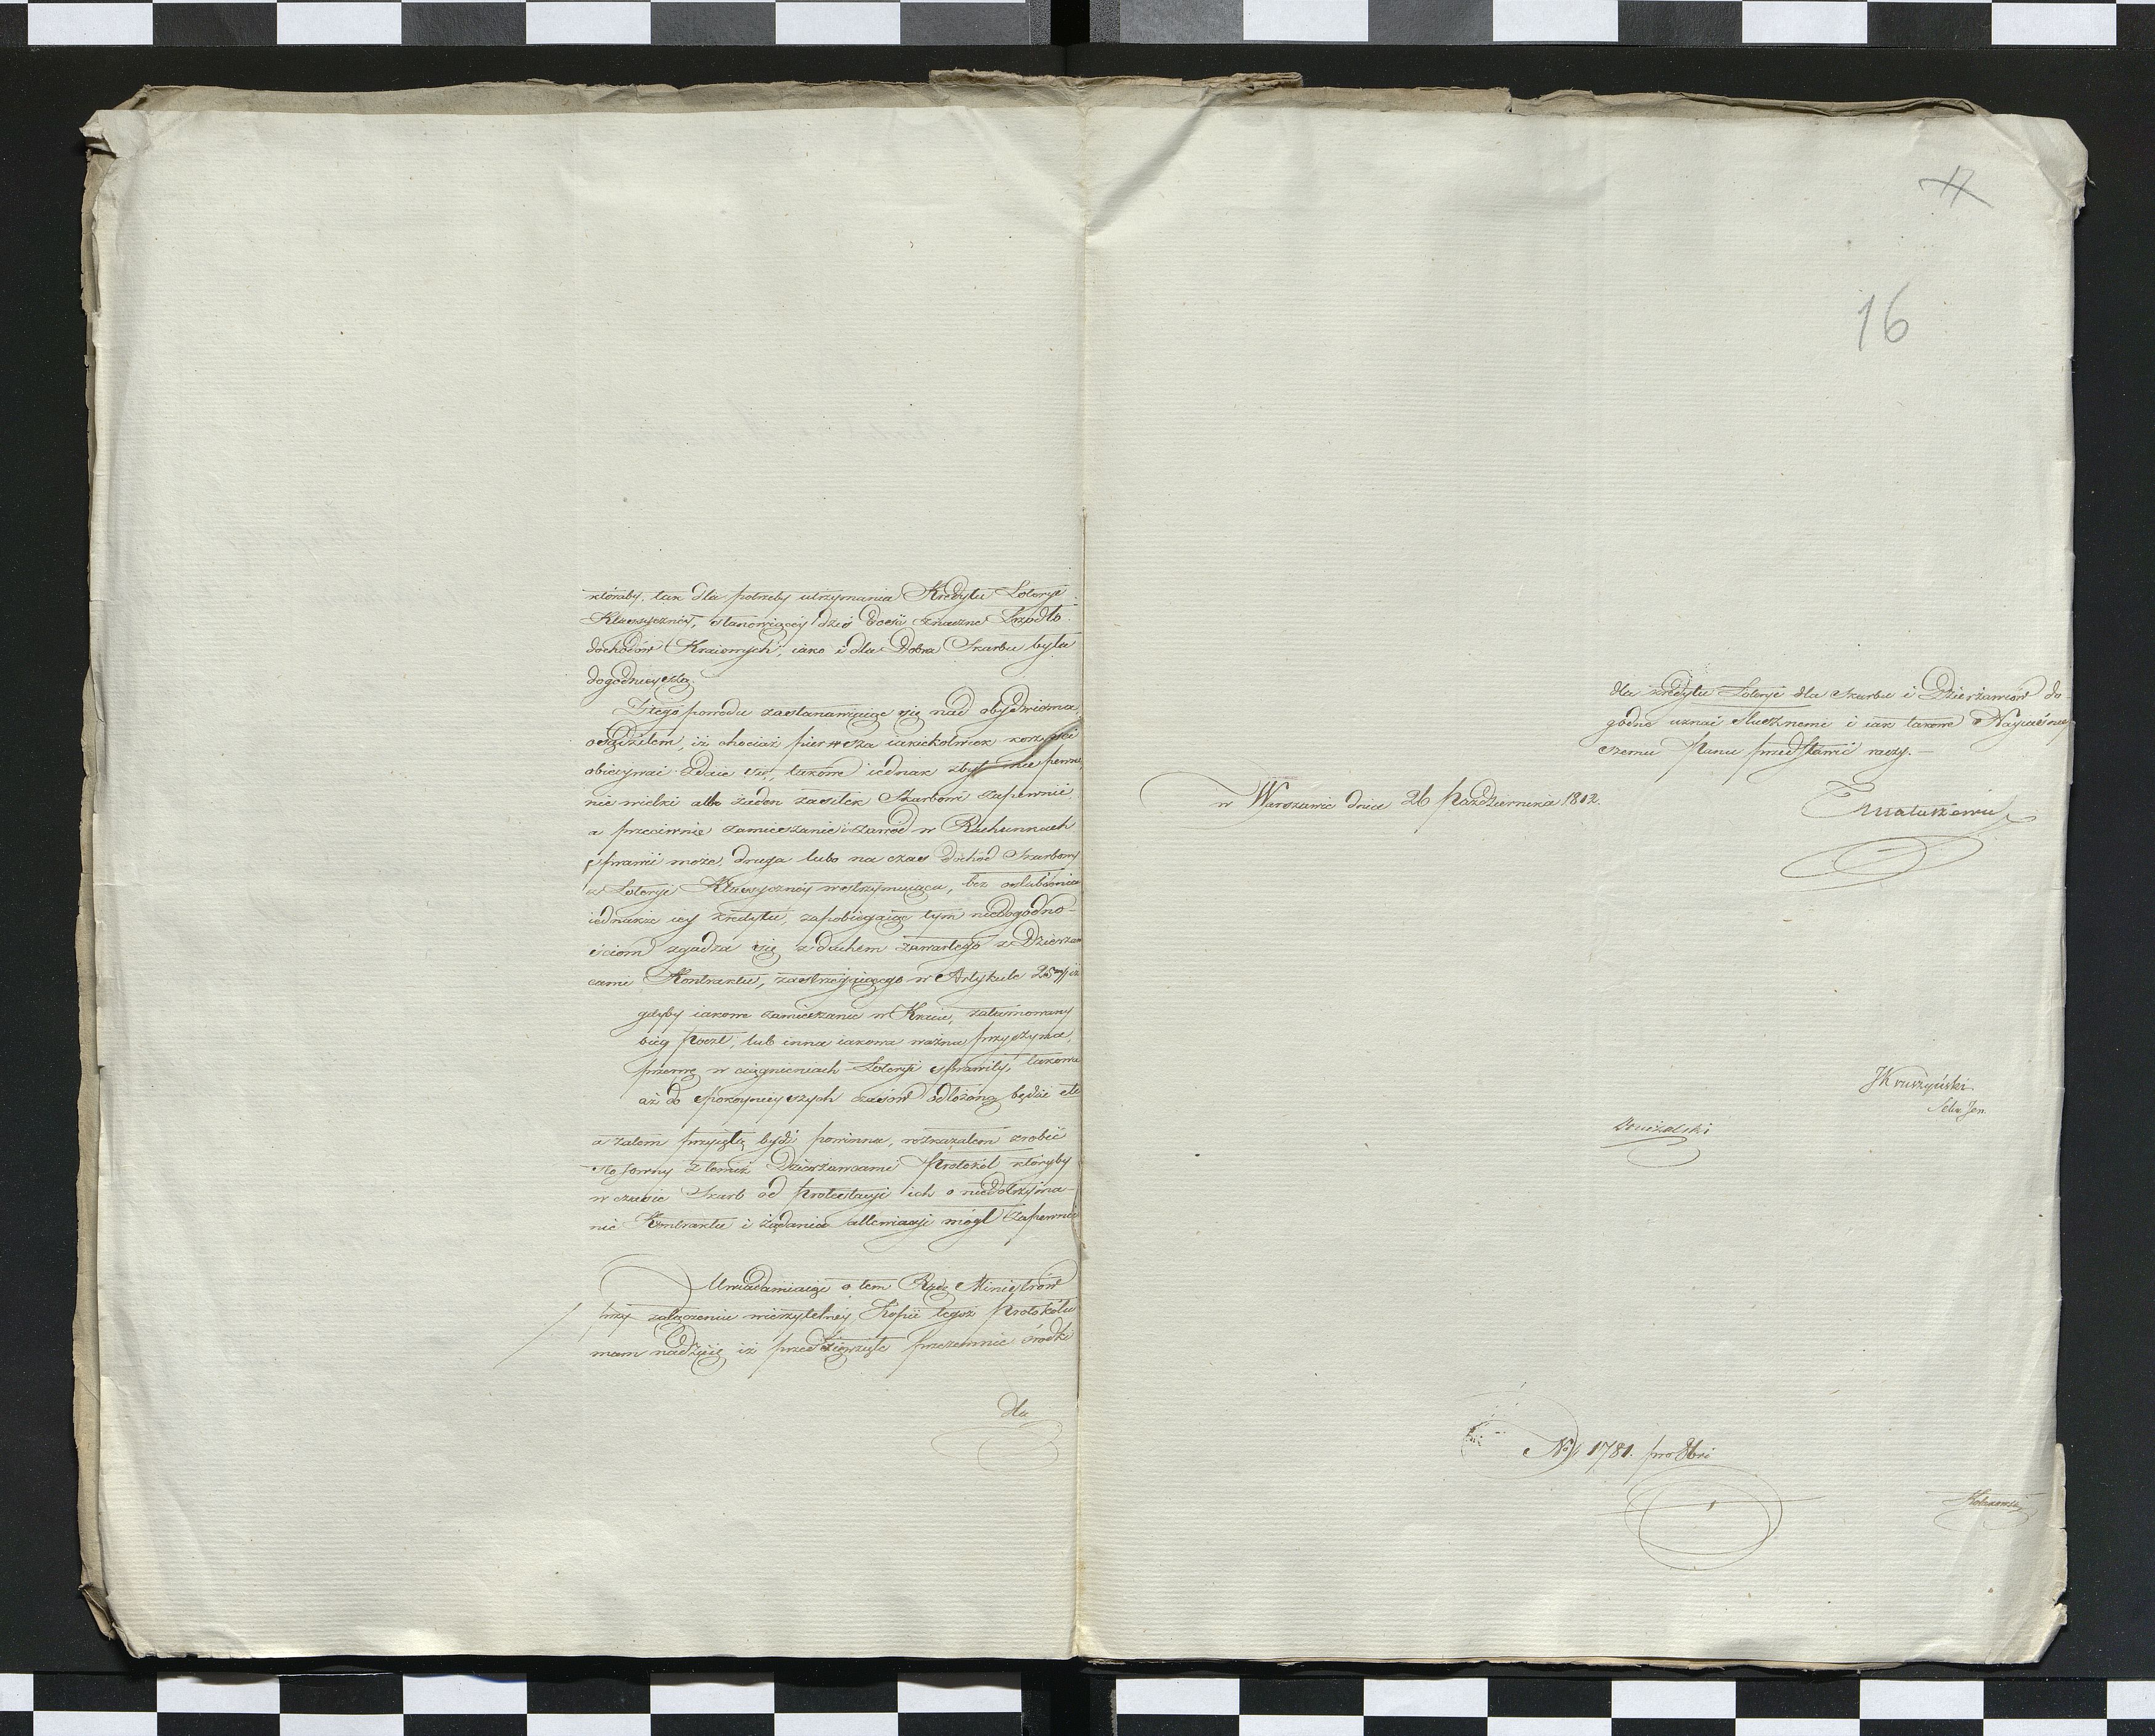 któraby, tak dla potrzeby utrzymania Kredytu Loteryi
Klassyczney, stanowiącey dziś dosić znaczne Źrzodło
dochodów Kraiowych, iako i dla Dobra Skarbu była
dogodnieyszą.
Z tego powodu zastanawiaiąc się nad obydwioma
osądziłem, iż chociaż pierwsza iakieżkolwiek korzyści
obiecywać zdaie się, takowe iednak zbyt nie pewne,
nie wielki albo żaden zasiłek Skarbowi zapewnić,
a przeciwnie zamieszanie i zawód w Rachunkach
sprawić może, druga lubo na czas dochod Skarbowy
z Loteryi Klassyczney wstrzymuiąca, bez osłabienia
iednakże iey kredytu, zapobiegaiąc tym niedogodno-
ściom zgadza się z duchem zawartego z Dzierżaw
cami Kontraktu, zastrzegaiącego w Artykule 25ym iż
gdyby iakowe zamieszanie w Kraiu, zatamowany
bieg Poczt, lub inna iakowa ważna przyczyna,
przerwę w ciągnieniach Loteryi sprawiły, takowe
aż do spokoynieyszych czasów odłożone będzie etc
a zatem przyiętą bydź powinna, rozkazałem zrobić
stosowny z temiż Dzierżawcami Protokół któryby
w czasie Skarb od protestacyi ich o niedotrzyma-
nie Kontraktu i żądania allewiacyi mógł zapewnić
Uwiadamiaiąc o tem Radę Ministrów
przy załączeniu wierzytelney Kopii tegoż Protokółu
mam nadzieię iż przedsięwzięte przezemnie środki
dla
17
16
dla kredytu Loteryi dla Skarbu i Dzierżawców do-
godne uznać słusznemi i iak takowe Nayiaśniey
szemu Panu przedstawić raczy.—
w Warszawie dnia 26 Października 1812.
T Matuszewic
JKruszyński
Sekr Jen.
No 1781. pro 8bri